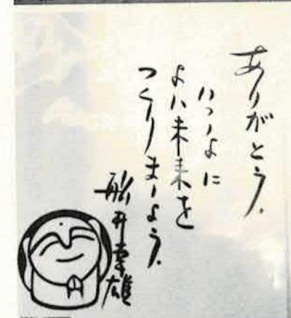 ありがとう.
いっしょに
よい未来を
つくりましょう.
船井幸雄